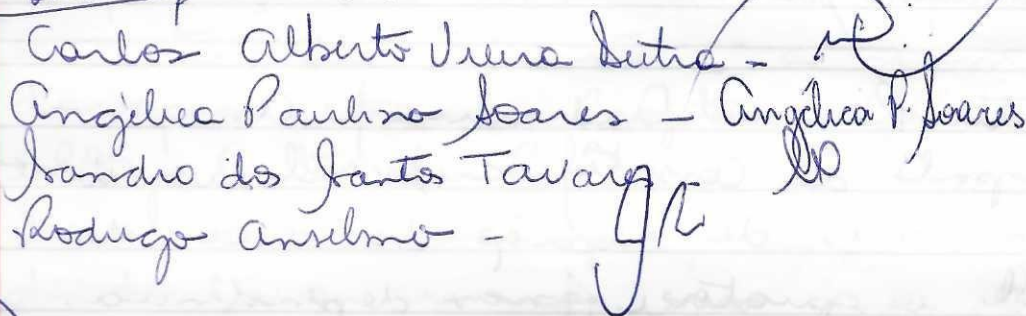 Carlos Alberto Vieira Dutra -
Angélica Paulino Soares - Angélica P. Soares
Sandro dos Santos Tavares -
Rodrigo Anselmo -